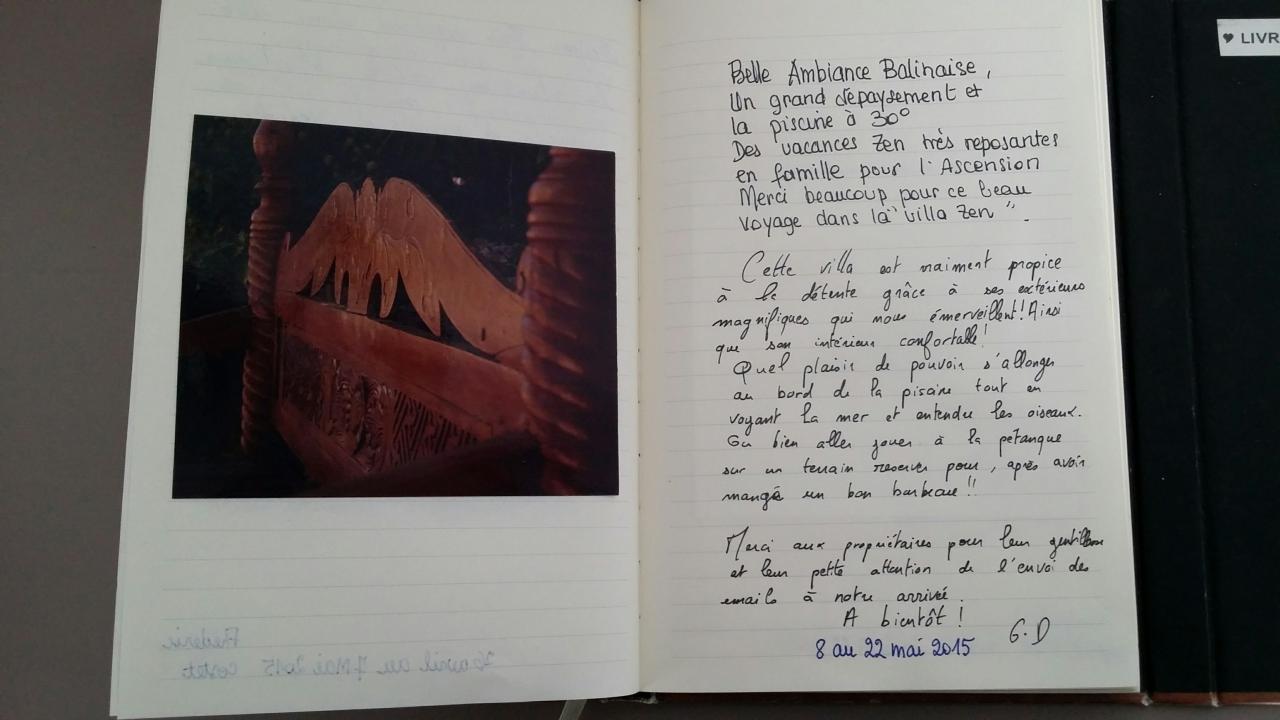 ♥ LIVR
Belle Ambiance Balinaise,
Un grand dépaysement et
la piscine à 30°
Des vacances zen très reposantes
en famille pour l'Ascension
Merci beaucoup pour ce beau
voyage dans la "villa zen".
Cette villa est vraiment propice
à la détente grâce à ses extérieurs
magnifiques qui nous émerveillent! Ainsi
que son intérieur confortable!
Quel plaisir de pouvoir s'allonger
au bord de la piscine tout en
voyant la mer et entendre les oiseaux.
Ou bien aller jouer à la pétanque
sur un terrain reserver pour, après avoir
mangé un bon barbecue!!
Merci aux propriétaires pour leur gentillesse
et leur petite attention de l'envoi des
emails à notre arrivée.
A bientôt!
G.D
8 au 22 mai 2015
Frederic
26 avril au 7 Mai 2015 costet